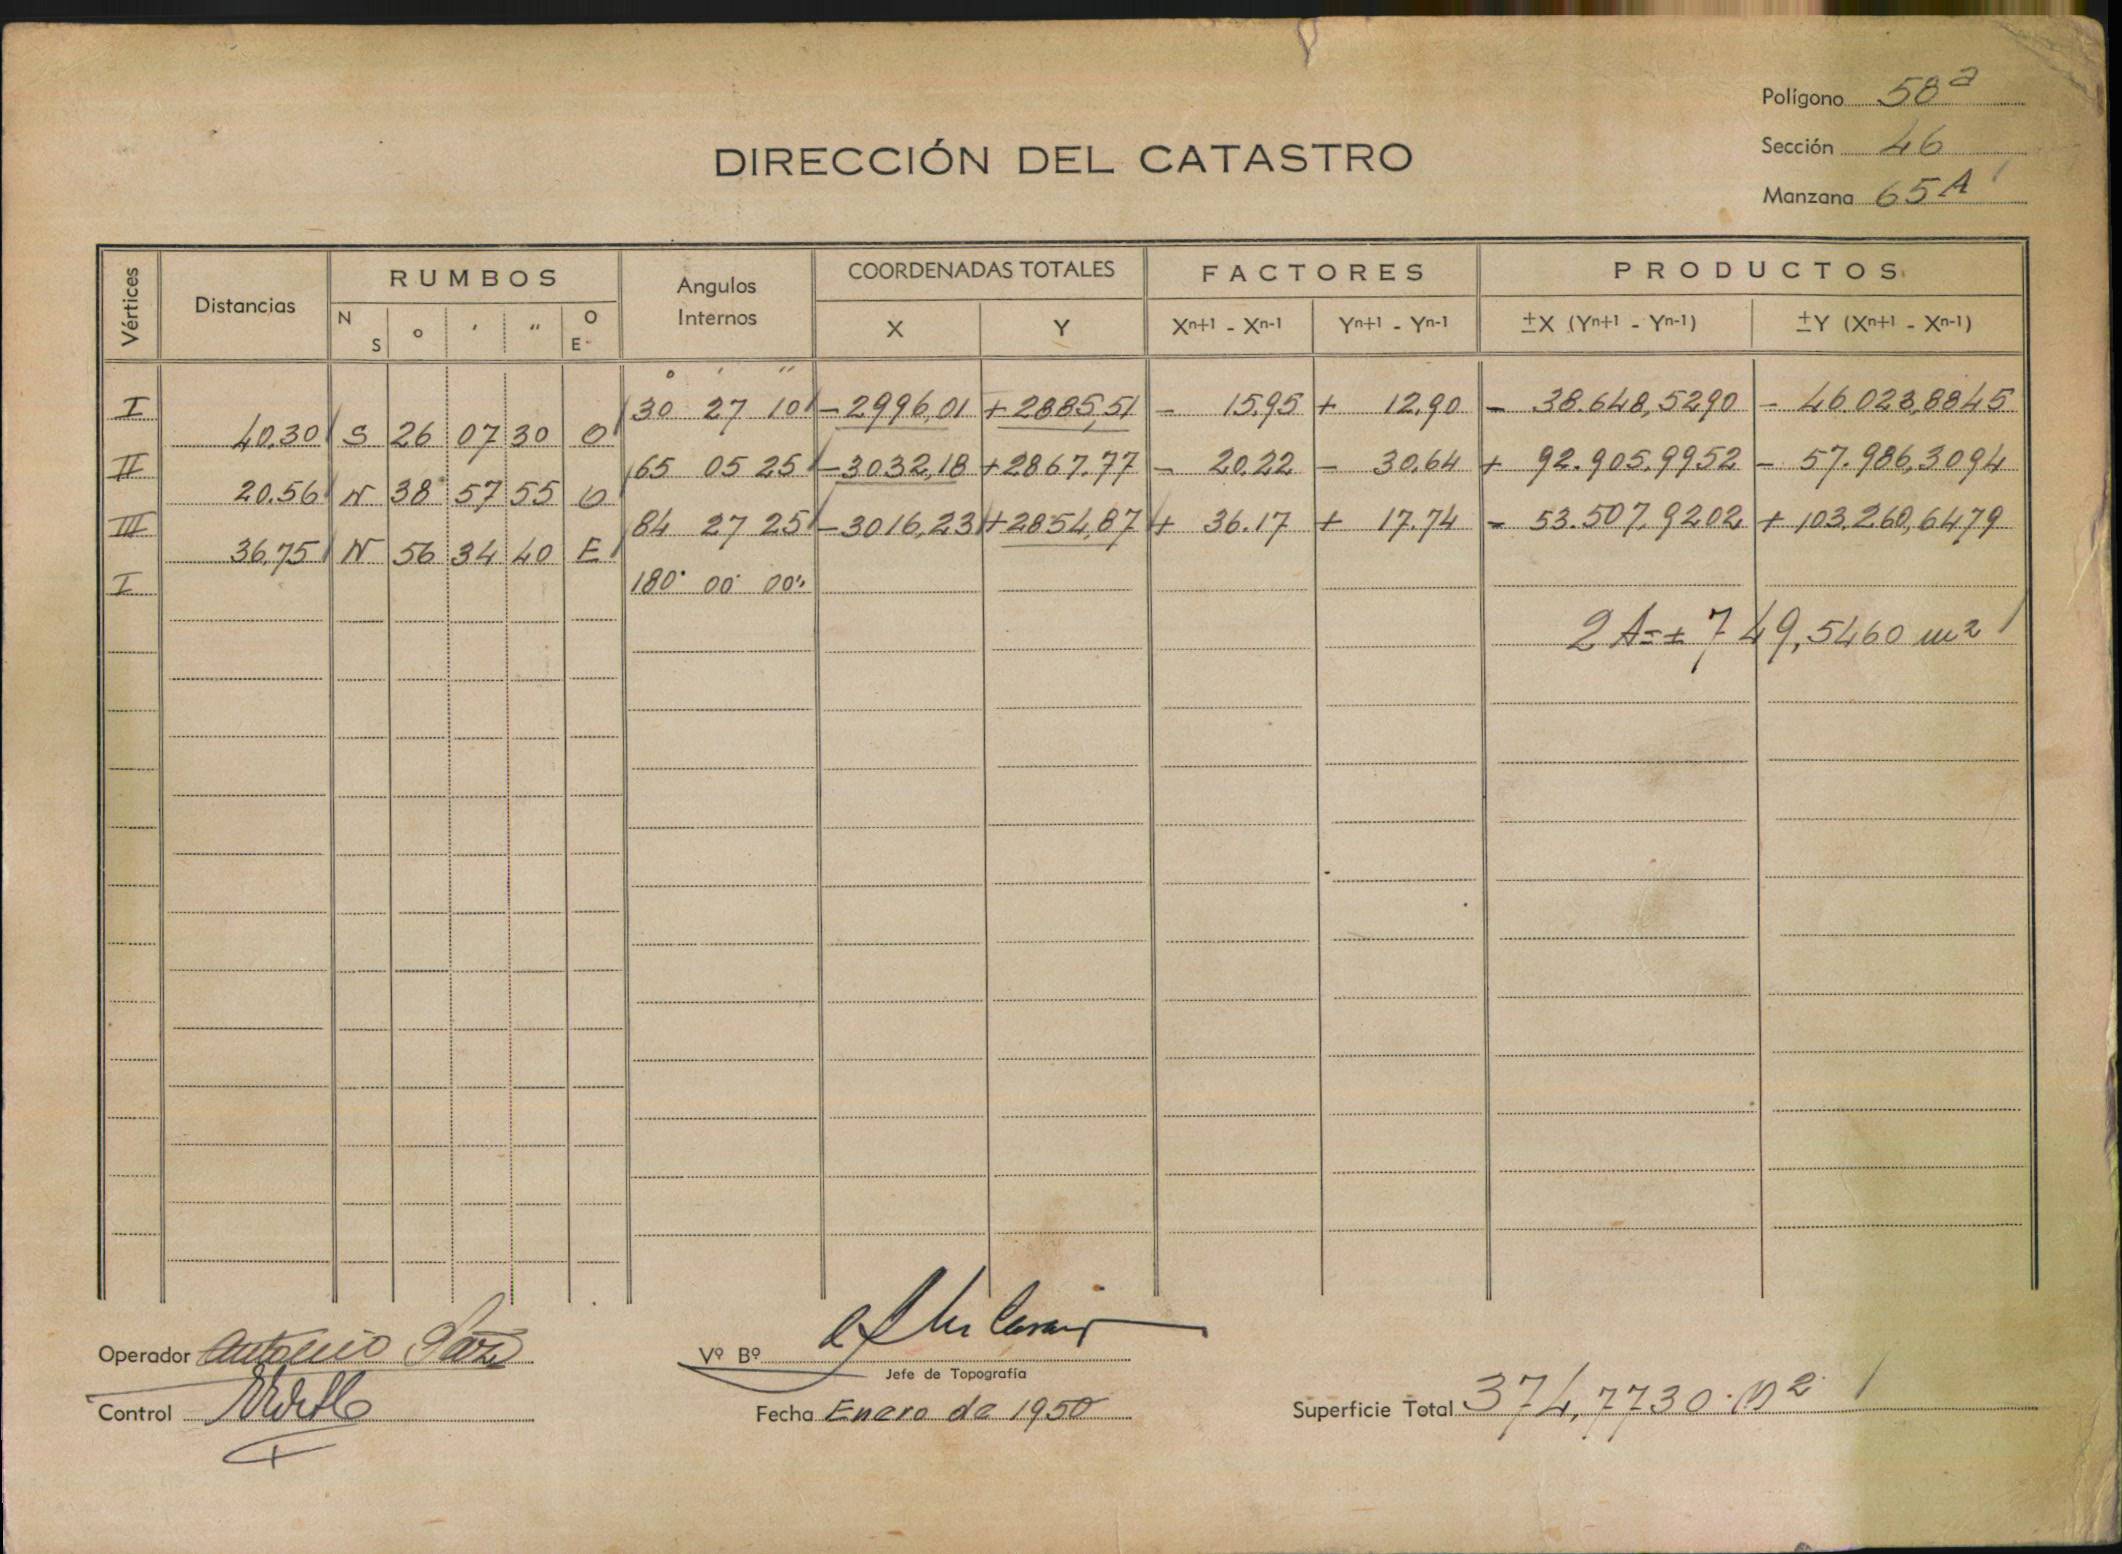 Polígono 58ª
Sección 46
DIRECCIÓN DEL CATASTRO
Manzana 65A
Vértices Distancias RUMBOS Angulos Internos COORDENADAS TOTALES FACTORES PRODUCTOS
N S ° ' " O E X Y Xⁿ⁺¹ - Xⁿ⁻¹ Yⁿ⁺¹ - Yⁿ⁻¹ ±X (Yⁿ⁺¹ - Yⁿ⁻¹) ±Y (Xⁿ⁺¹ - Xⁿ⁻¹)
° ' "
I 30 27 10 -2996,01 +2885,51 - 15,95 + 12,90 - 38.648,5290 - 46.023,8845
40,30 S 26 07 30 O
II 65 05 25 -3032,18 +2867,77 - 20,22 - 30,64 + 92.905,9952 - 57.986,3094
20,56 N 38 57 55 O
III 84 27 25 -3016,23 +2854,87 + 36,17 + 17,74 - 53.507,9202 + 103.260,6479
36,75 N 56 34 40 E
I 180° 00' 00"
2A=+749,5460 m2
Operador Antonio
Vº Bº
Jefe de Topografía
Control
Fecha Enero de 1950
Superficie Total 374,7730 m2